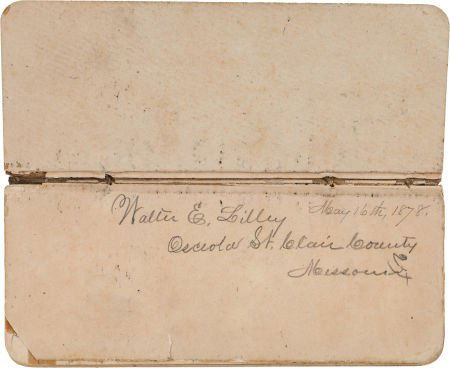 Walter E. Lilley May 16th, 1878.
Osceola St. Clair County
Missouri